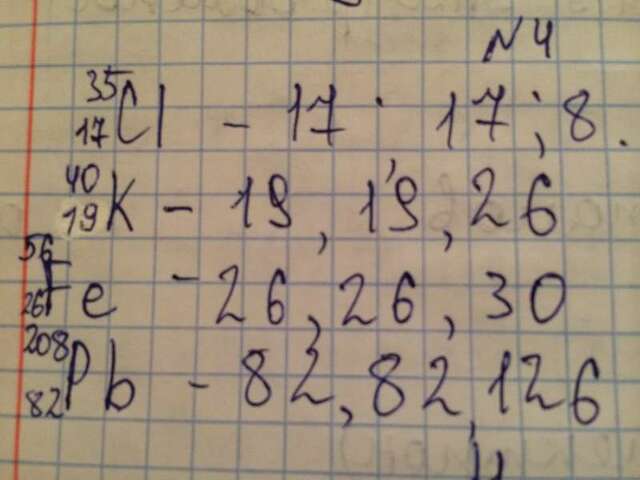 №4
³⁵₁₇Cl – 17; 17; 8.
⁴⁰₁₉K – 19, 19, 26
⁵⁶₂₆Fe – 26, 26, 30
²⁰⁸₈₂Pb – 82, 82, 126